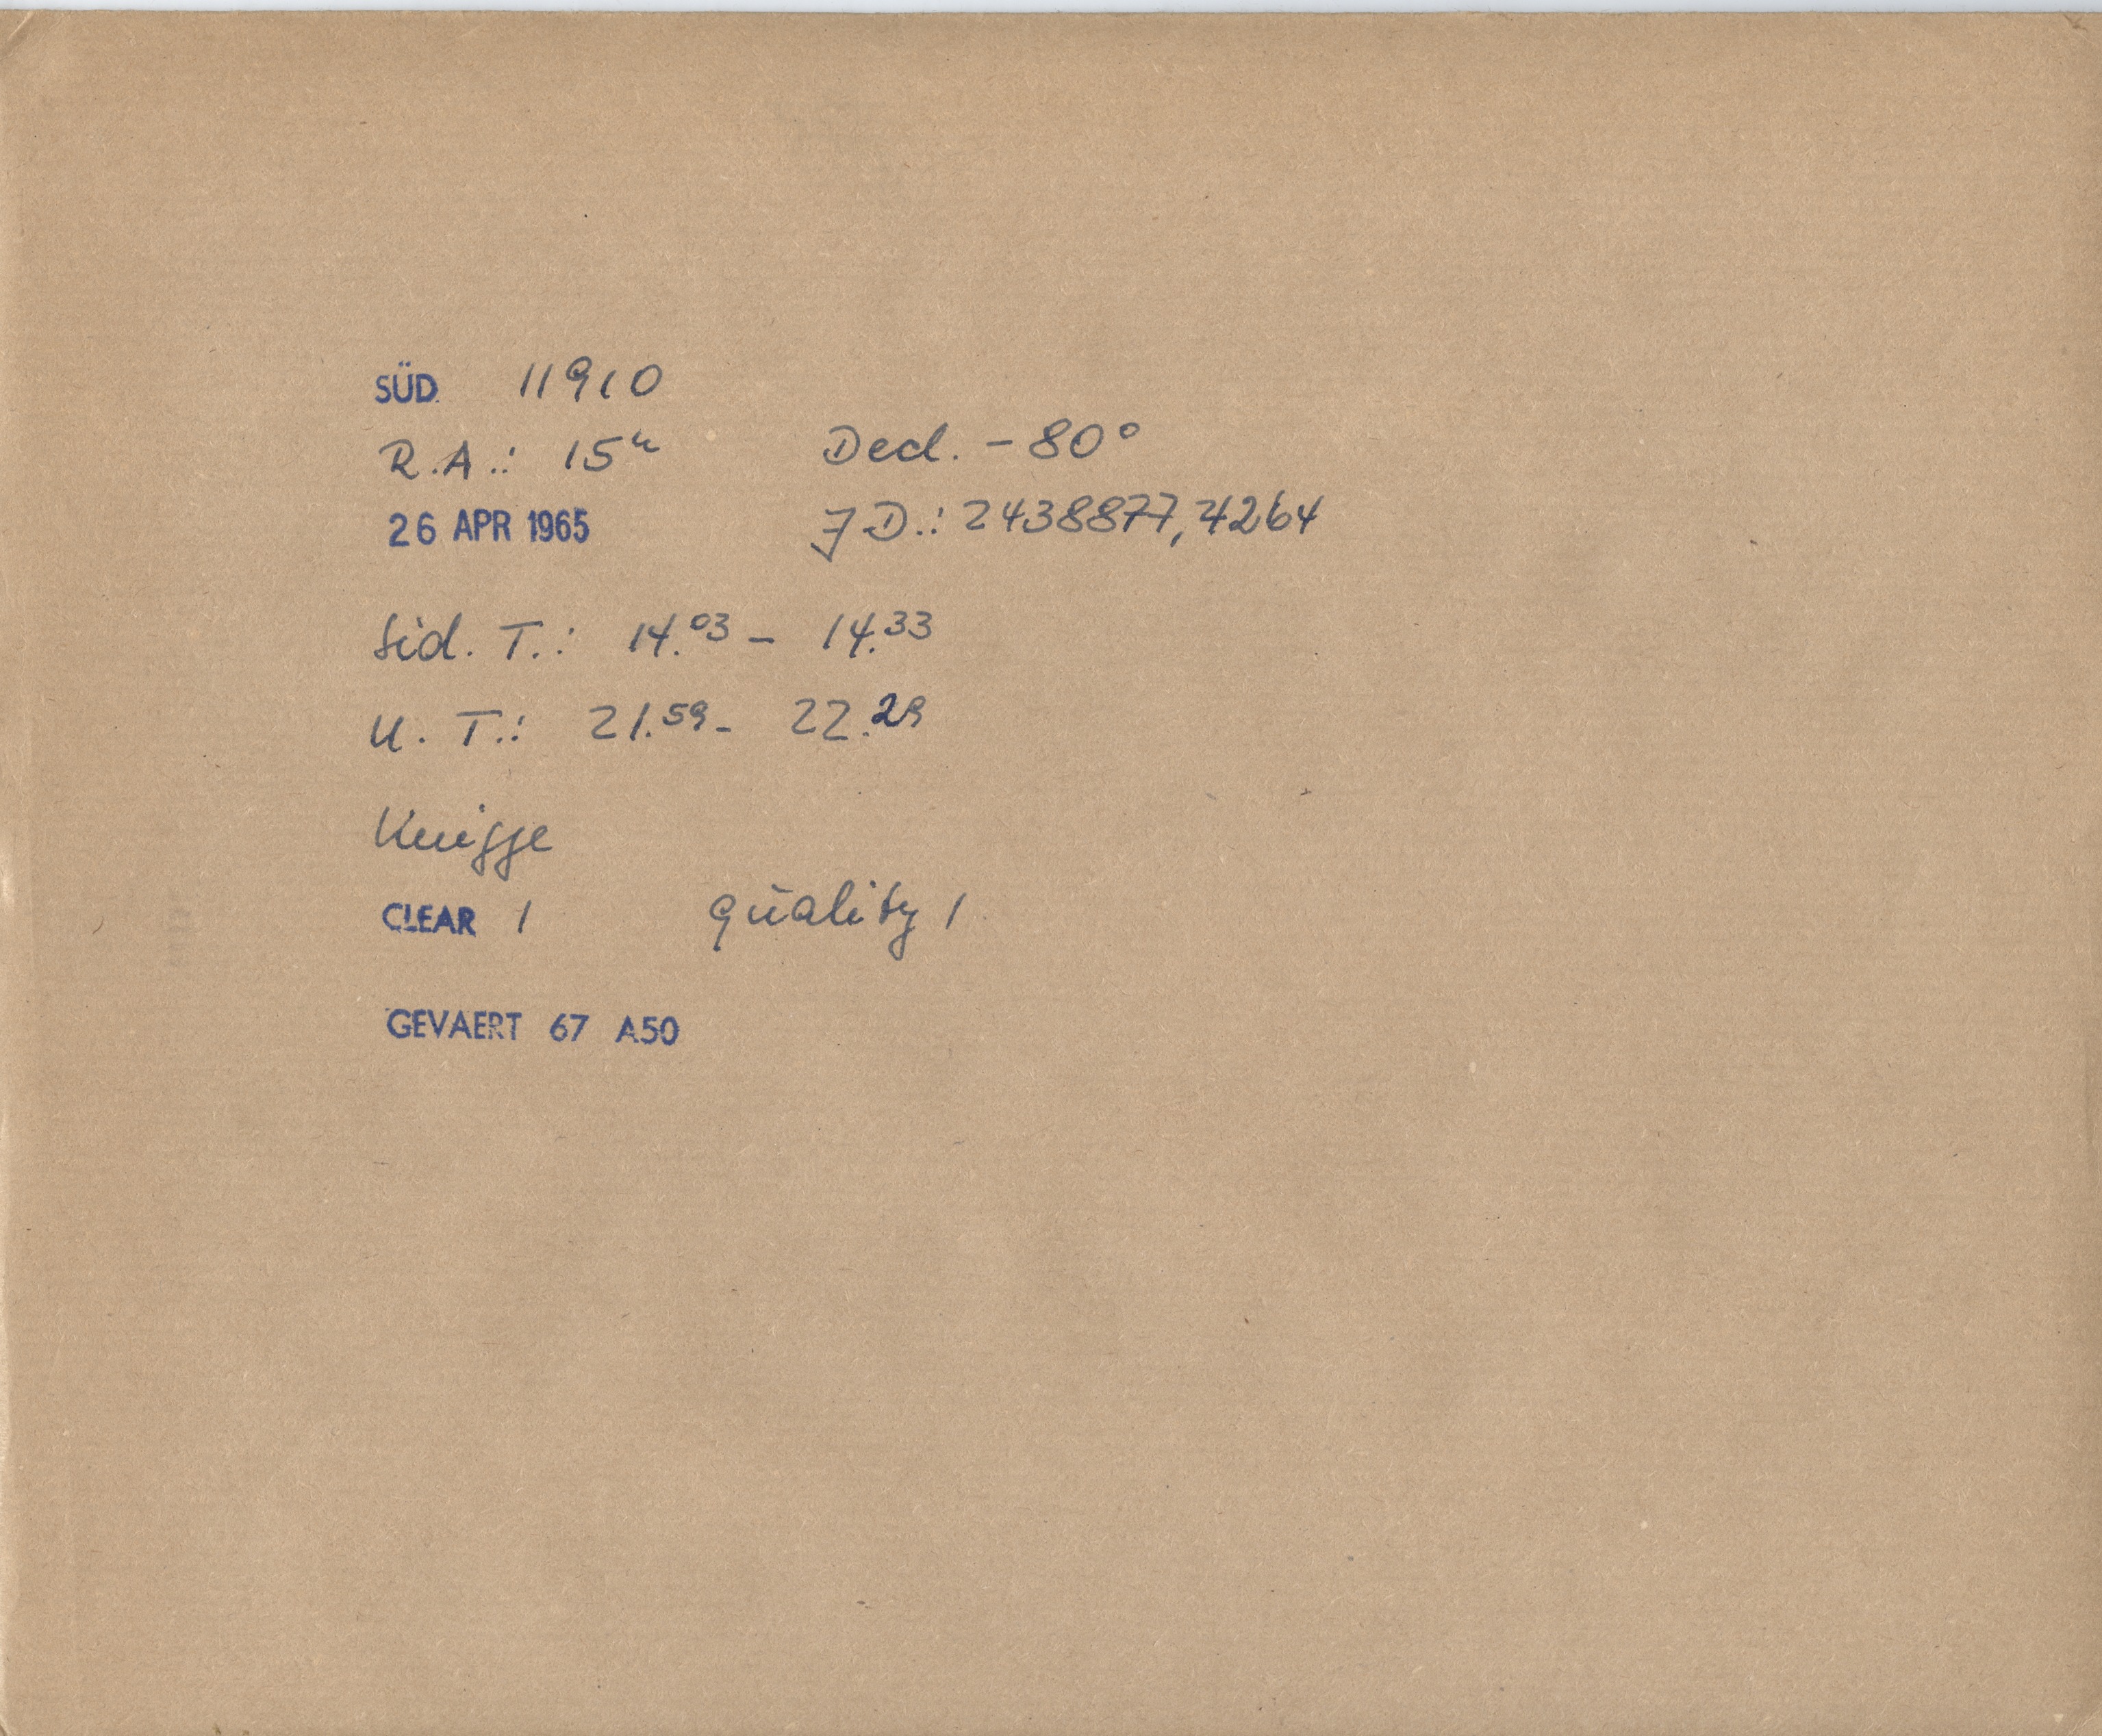 SÜD 11910
R.A.: 15h Decl. -80°
26 APR 1965 JD.: 2438877,4264
Sid. T.: 14.03 - 14.33
U. T.: 21.59 - 22.29
Knigge
CLEAR 1 quality 1
GEVAERT 67 A50